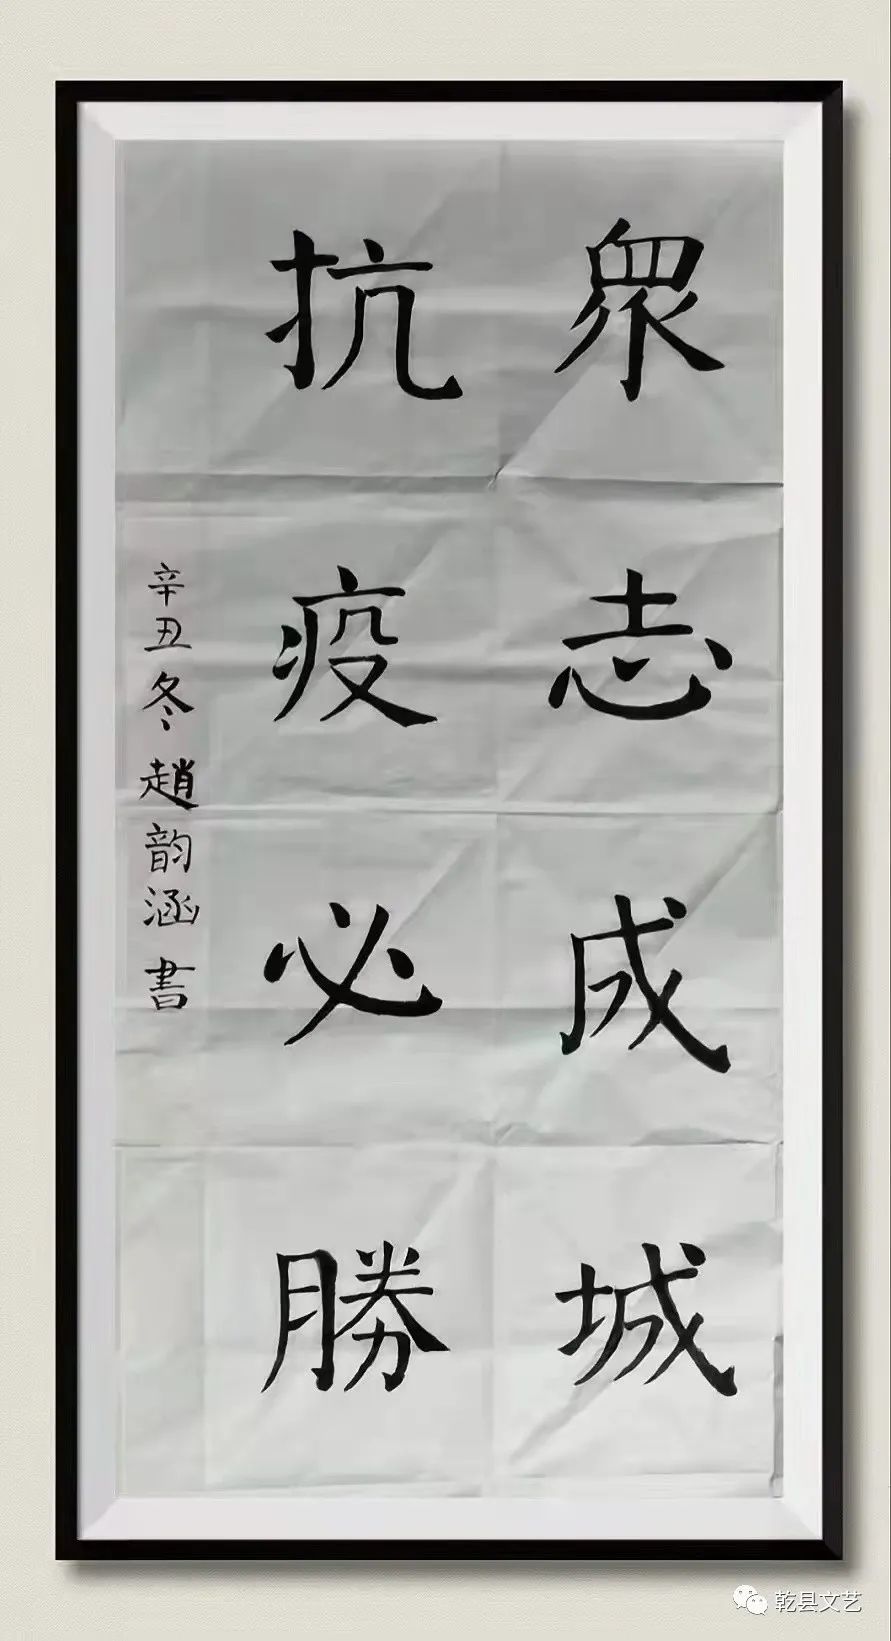 眾志成城
抗疫必勝
辛丑冬趙韵涵書
乾县文艺